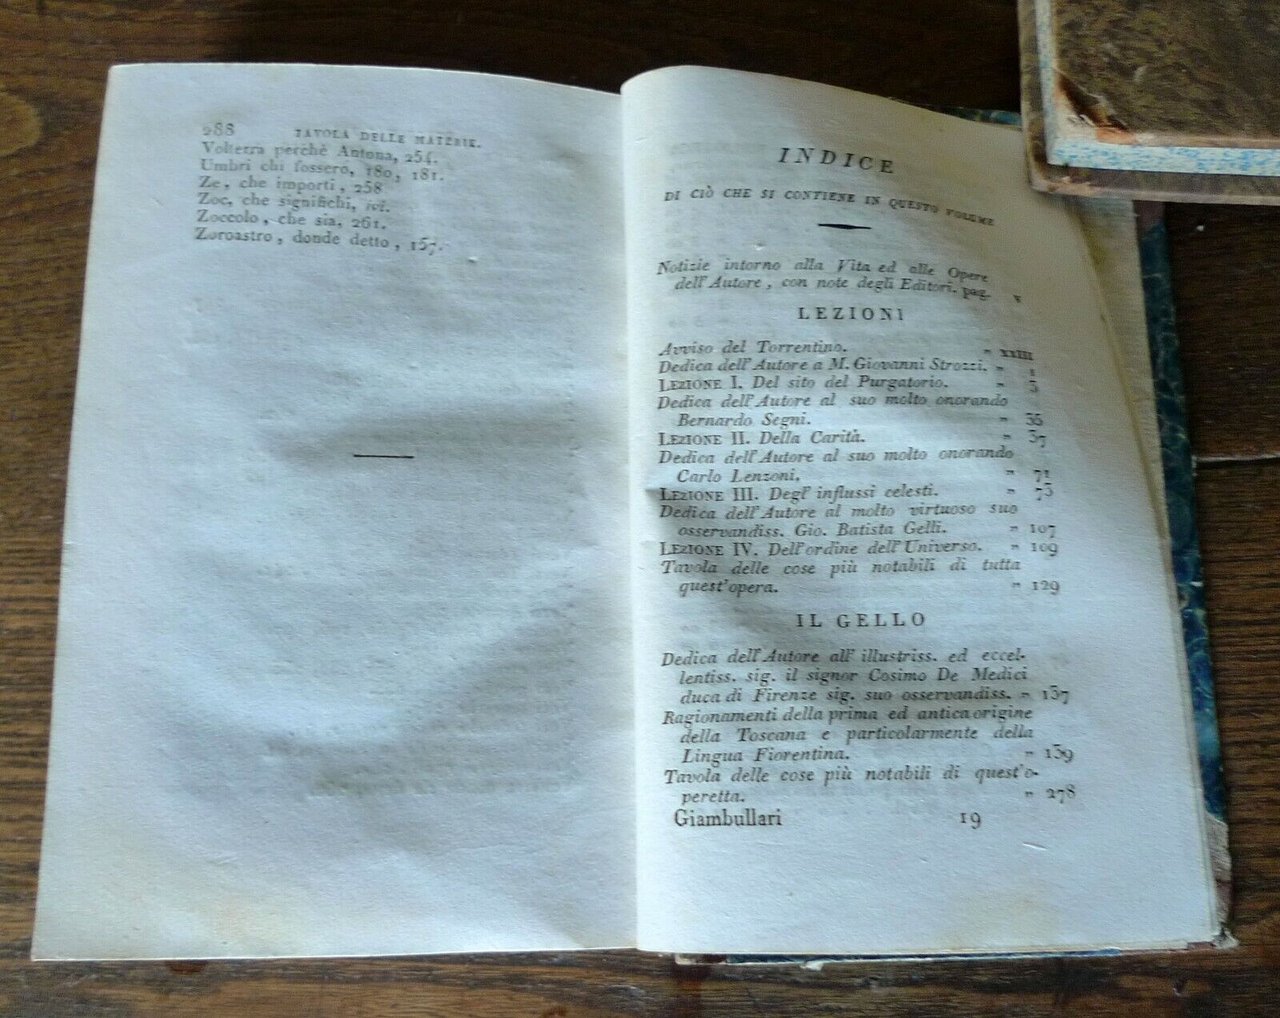 288 TAVOLA DELLE MATERIE.
Volterra perchè Antona, 254.
Umbri chi fossero, 180, 181.
Ze, che importi, 258
Zoc, che significhi, ivi.
Zoccolo, che sia, 261.
Zoroastro, donde detto, 157.
INDICE
DI CIÒ CHE SI CONTIENE IN QUESTO VOLUME
Notizie intorno alla Vita ed alle Opere
dell'Autore, con note degli Editori. pag. v
LEZIONI
Avviso del Torrentino. " XXIII
Dedica dell'Autore a M. Giovanni Strozzi. " 1
LEZIONE I. Del sito del Purgatorio. " 3
Dedica dell'Autore al suo molto onorando
Bernardo Segni. " 35
LEZIONE II. Della Carità. " 37
Dedica dell'Autore al suo molto onorando
Carlo Lenzoni. " 71
LEZIONE III. Degl' influssi celesti. " 73
Dedica dell'Autore al molto virtuoso suo
osservandiss. Gio. Batista Gelli. " 107
LEZIONE IV. Dell'ordine dell'Universo. " 109
Tavola delle cose più notabili di tutta
quest'opera. " 129
IL GELLO
Dedica dell'Autore all' illustriss. ed eccel-
lentiss. sig. il signor Cosimo De Medici
duca di Firenze sig. suo osservandiss. " 137
Ragionamenti della prima ed antica origine
della Toscana e particolarmente della
Lingua Fiorentina. " 139
Tavola delle cose più notabili di quest'o-
peretta. " 278
Giambullari 19